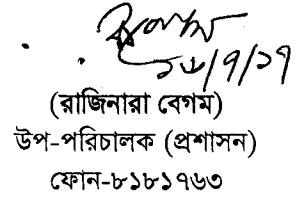 ১৮/৭/১৭
(রাজিনারা বেগম)
উপ-পরিচালক (প্রশাসন)
ফোন-৮১৮১৭৬৩